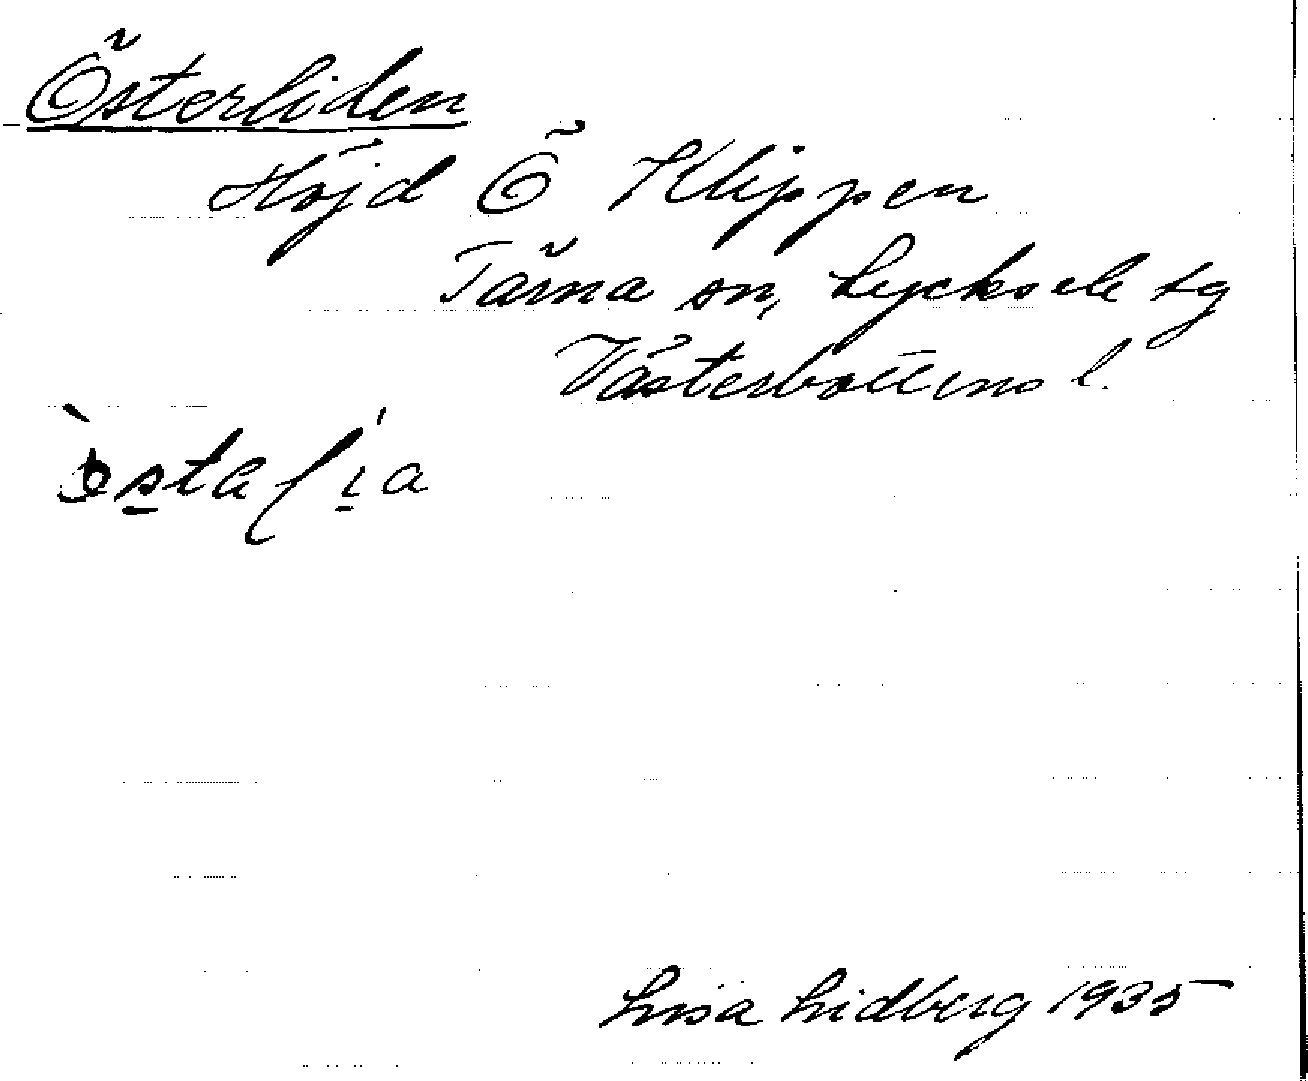 Österliden
Höjd Ö Klippen
Tärna sn, Lycksele tg
Västerbottens l.
Lisa Lidberg 1935